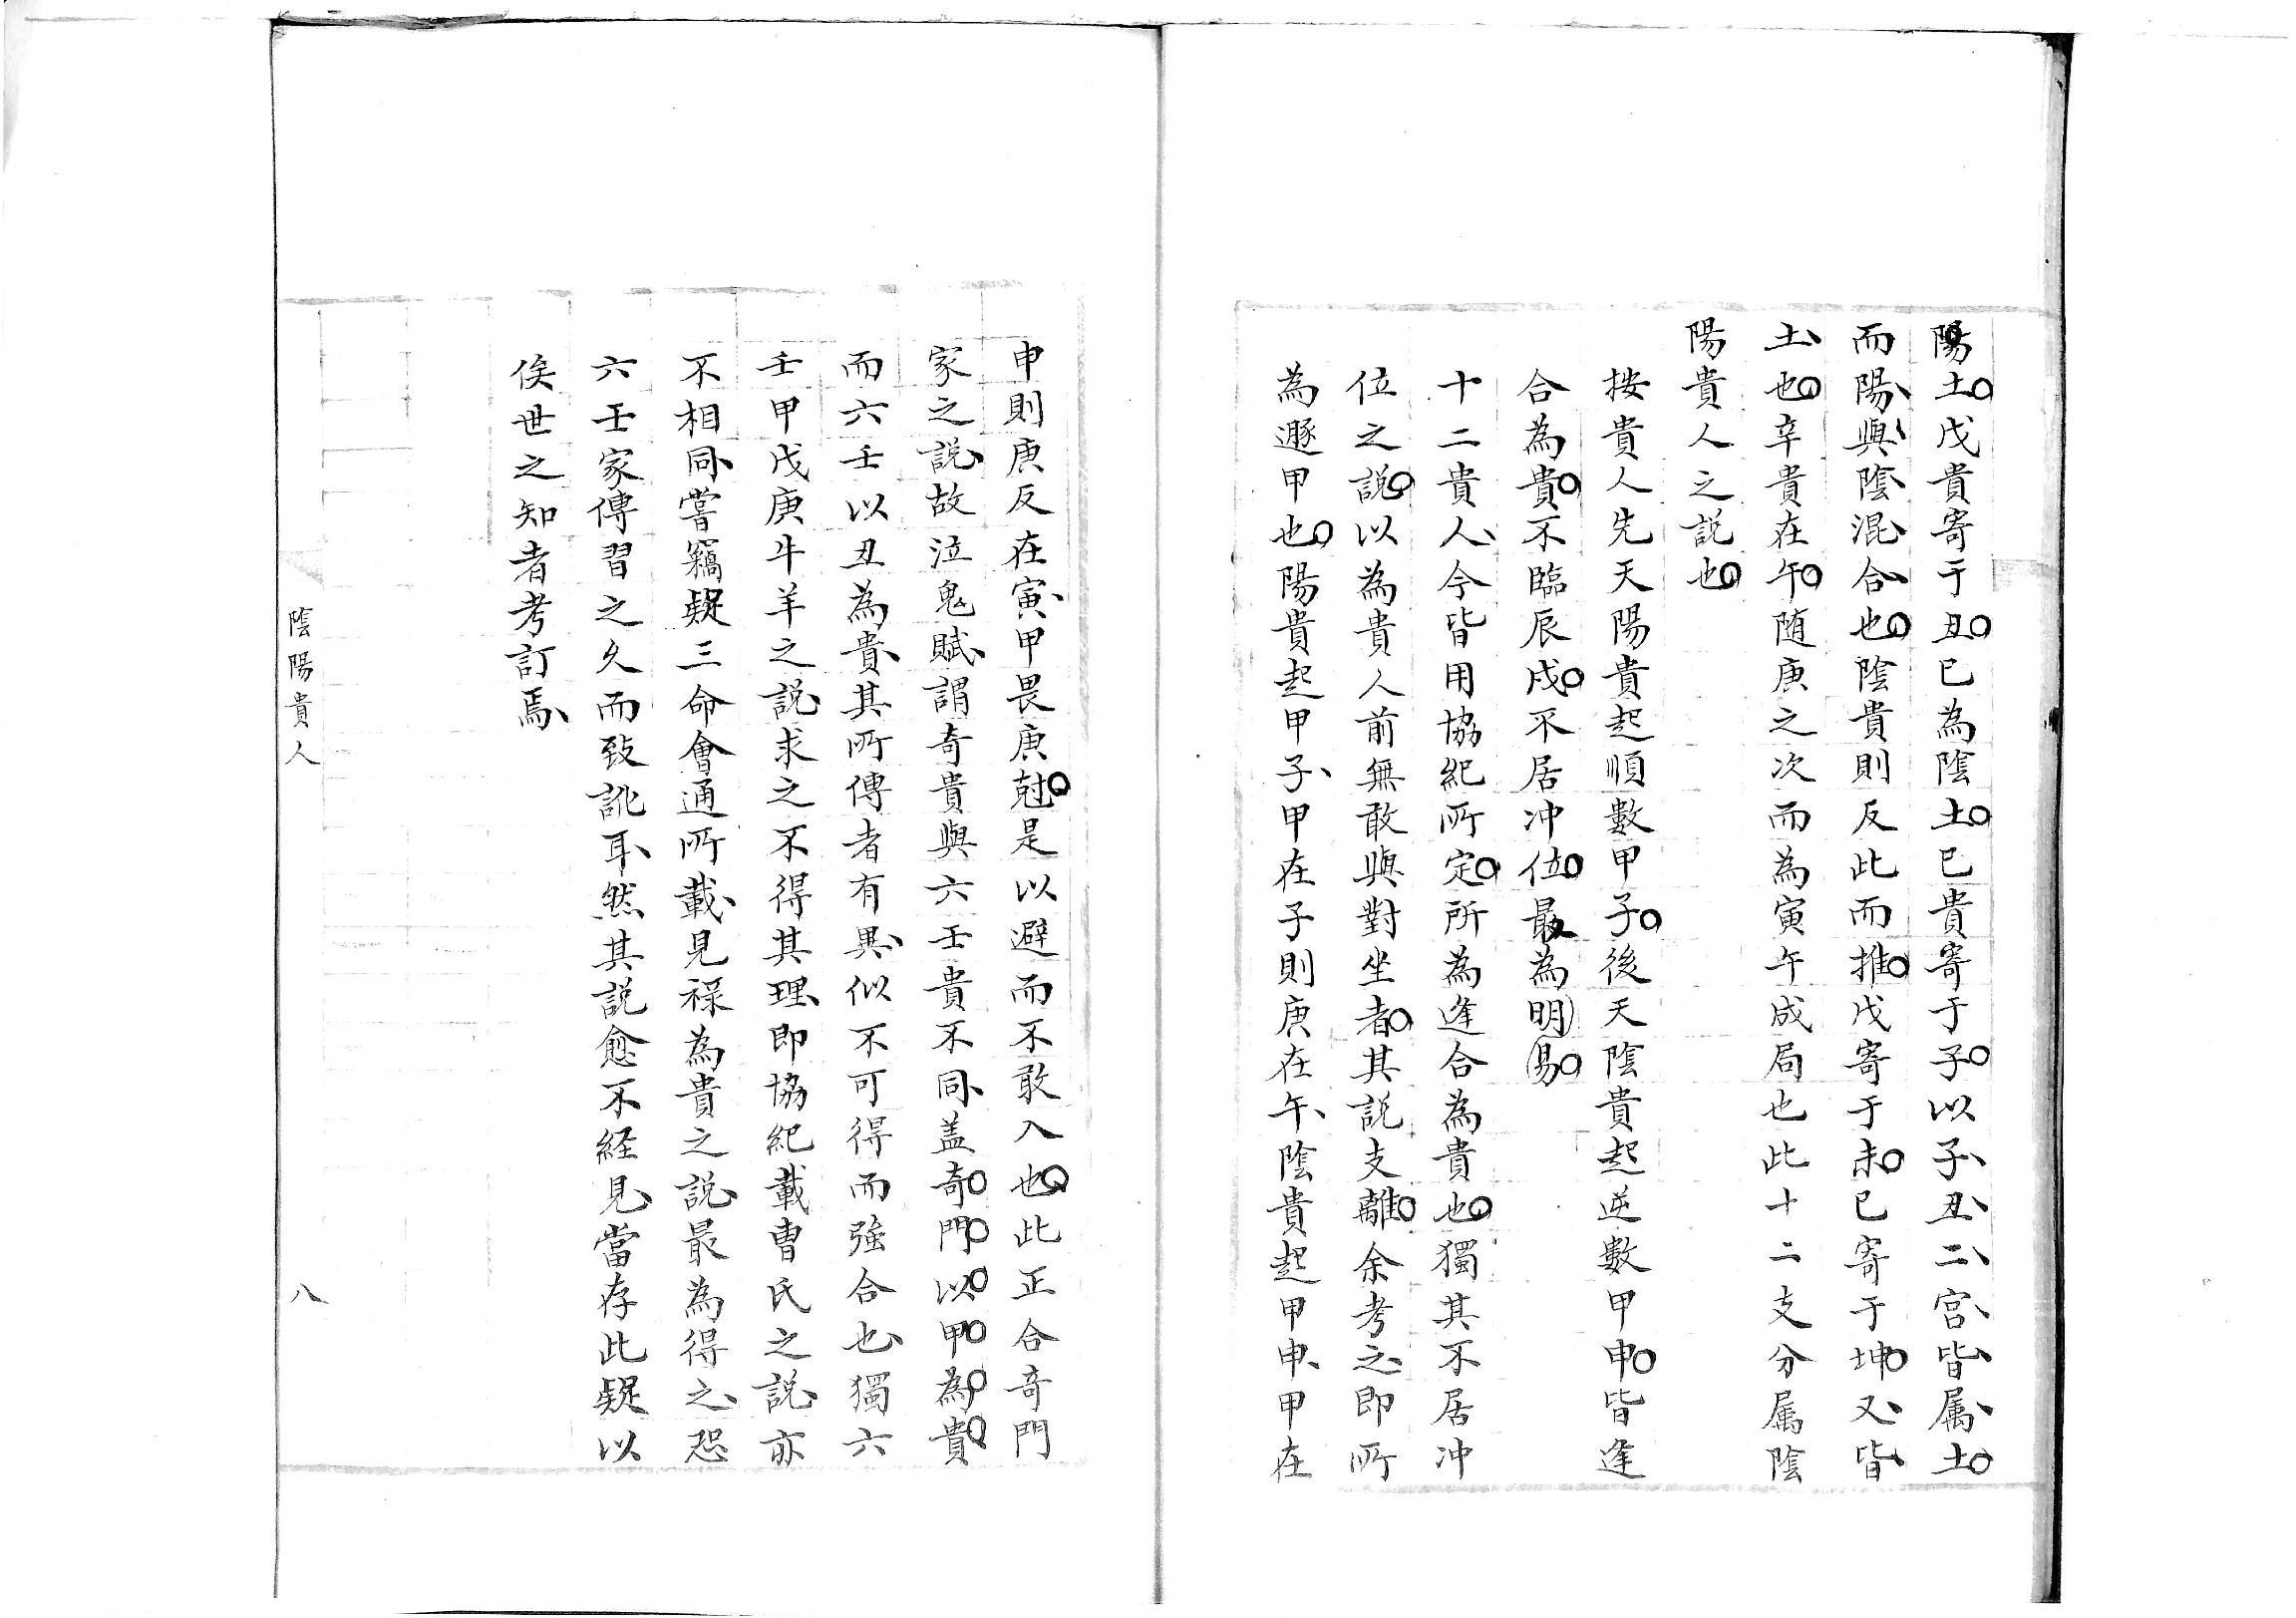 陽土戊貴寄于丑已為陰土已貴寄于子以子丑二宮皆属土
而陽與陰混合也陰貴則反此而推戊寄于未已寄于坤又皆
土也辛貴在午随庚之次而為寅午成局也此十二支分属陰
陽貴人之説也
按貴人先天陽貴起順數甲子後天陰貴起逆數甲申皆逢
合為貴不臨辰戌不居冲位最為明易
十二貴人今皆用協紀所定所為逢合為貴也獨其不居冲
位之説以為貴人前無敢與對坐者其説支離余考之即所
為遯甲也陽貴起甲子甲在子則庚在午陰貴起甲申甲在
申則庚反在寅甲畏庚尅是以避而不敢入也此正合竒門
家之説故泣鬼賦謂奇貴與六壬貴不同盖奇門以甲為貴
而六壬以丑為貴其所傳者有異似不可得而強合也獨六
壬甲戊庚牛羊之説求之不得其理即協紀載曹氏之説亦
不相同嘗竊疑三命會通所載見禄為貴之説最為得之恐
六壬家傳習之久而致訛耳然其説愈不経見當存此疑以
俟世之知者考訂焉
陰陽貴人
八